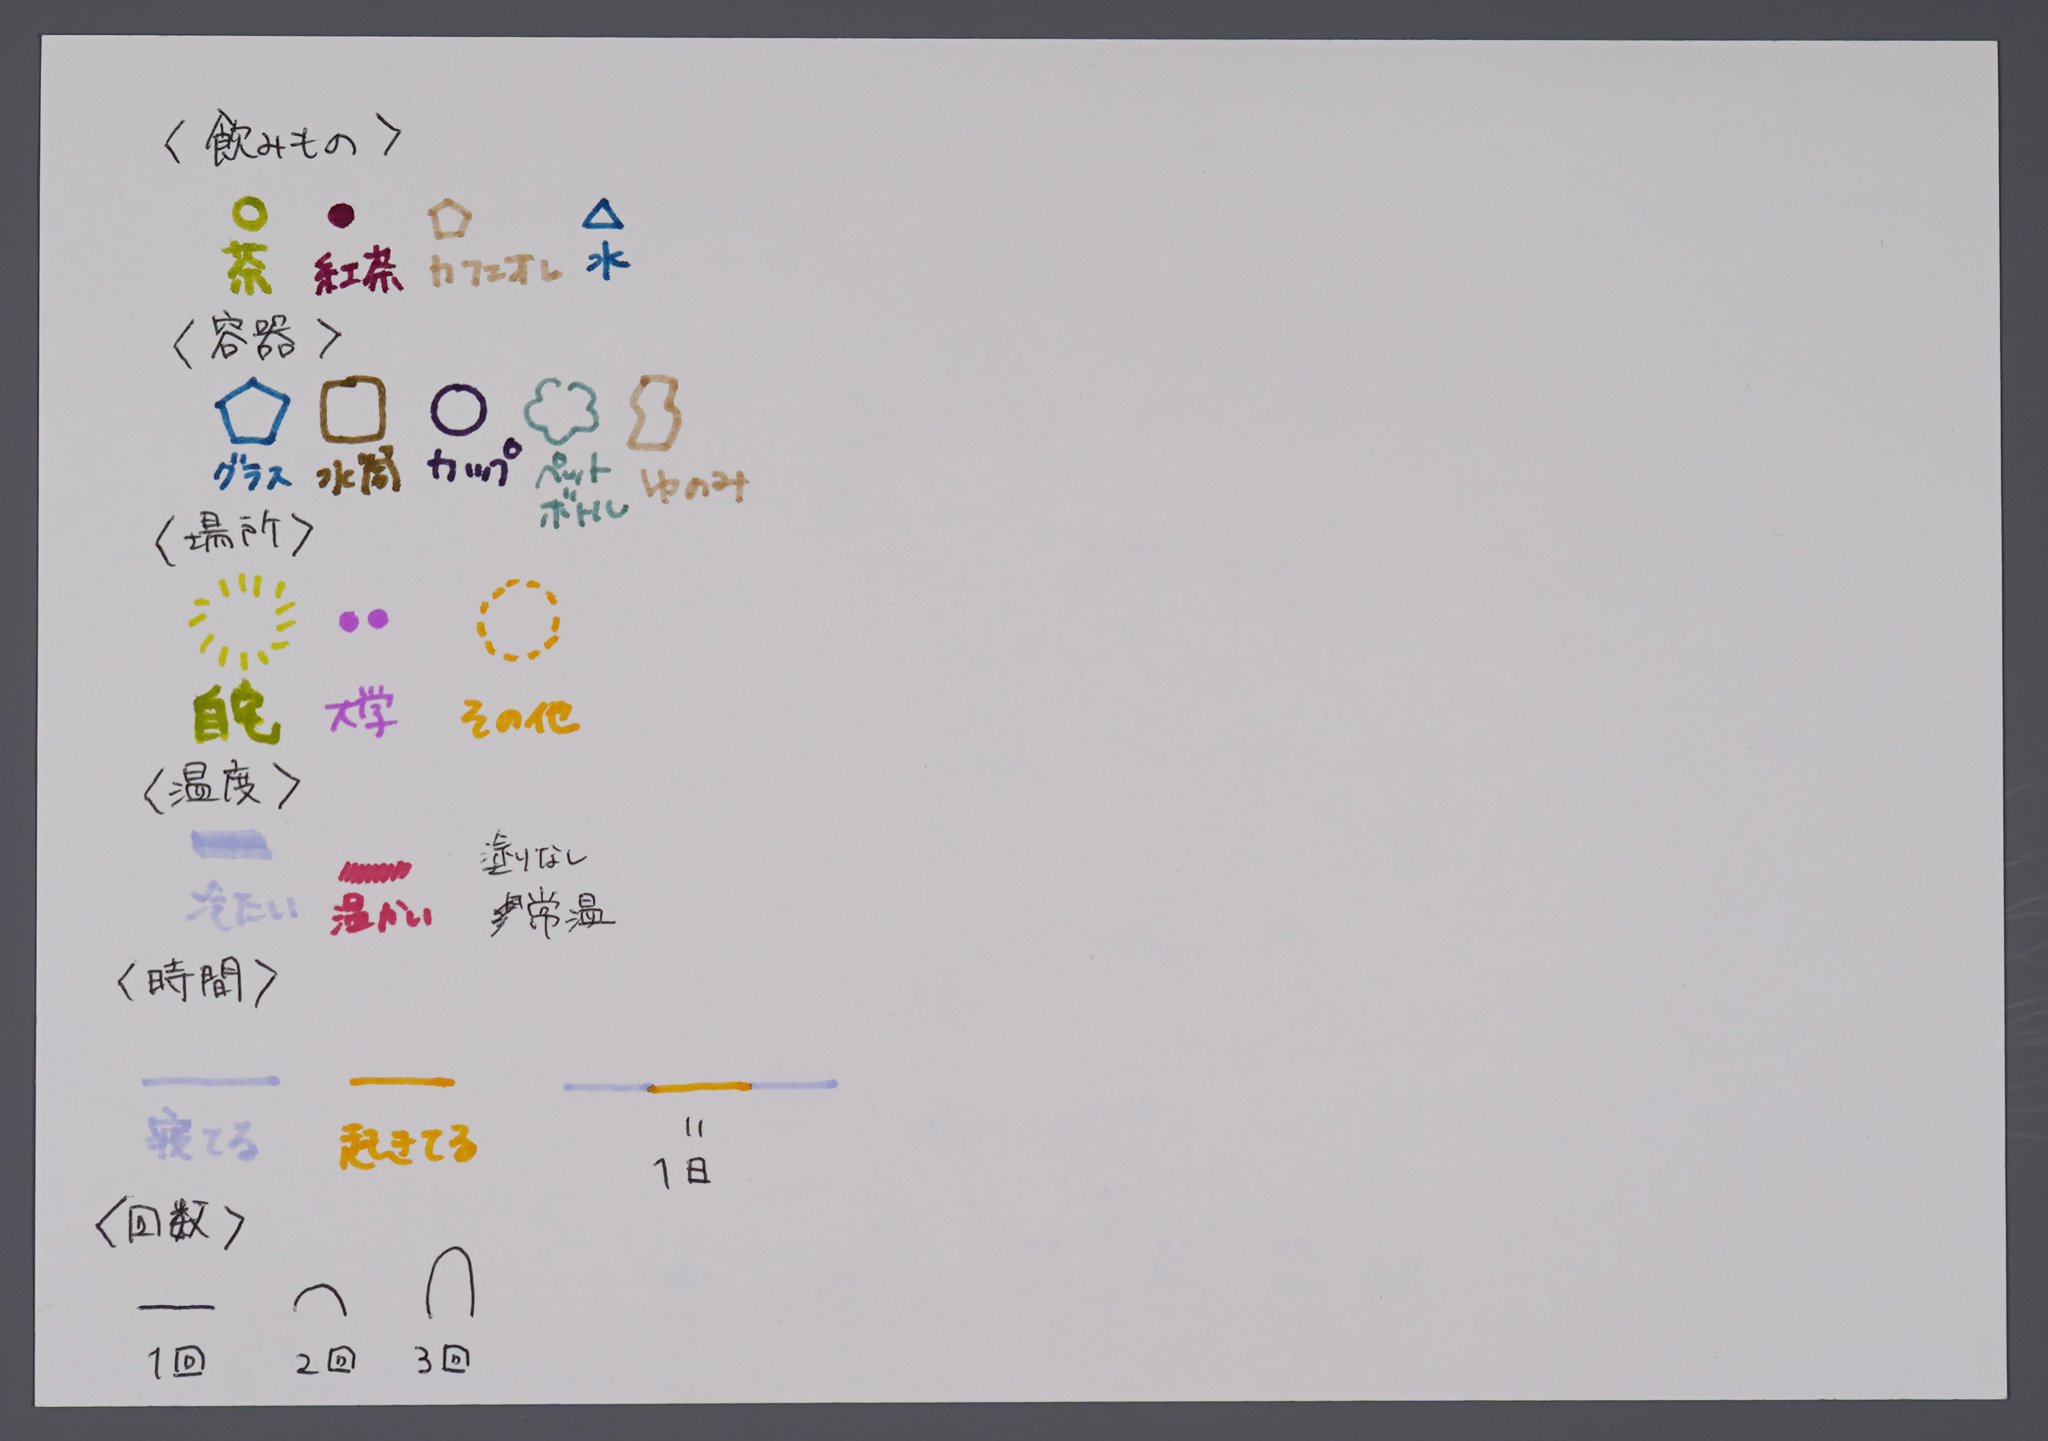 〈飲みもの〉
茶 紅茶 カフェオレ 水
〈容器〉
グラス 水筒 カップ ペットボトル ゆのみ
〈場所〉
自宅 大学 その他
〈温度〉
塗りなし
冷たい 温かい 常温
〈時間〉
寝てる 起きてる 〃 1日
〈回数〉
1回 2回 3回